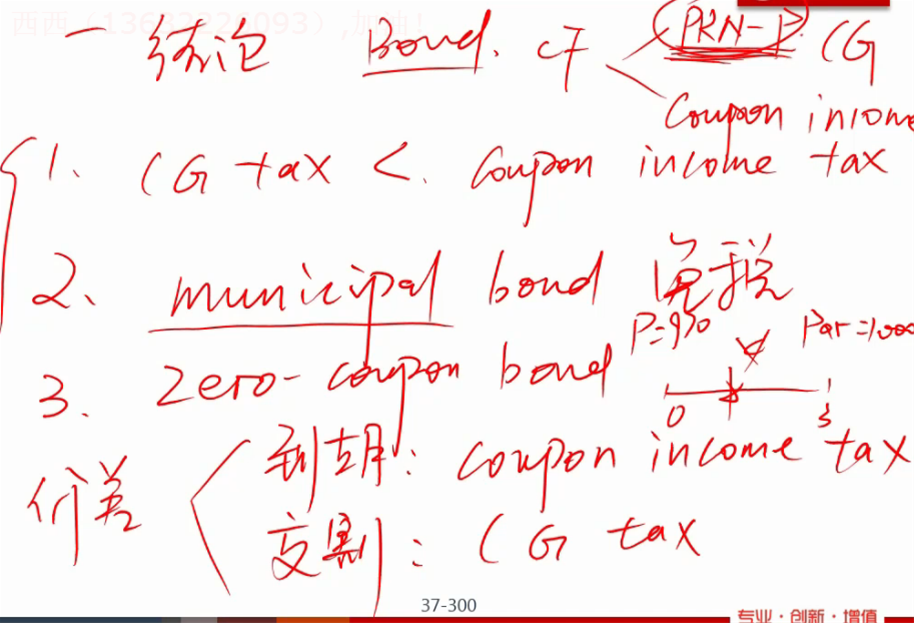 西西（13632226093）,加油！
一 结论 Bond. CF (PRN-P) CG
Coupon income
1. CG tax < . Coupon income tax
2、 municipal bond 免税
P=970 Par=1000
3. Zero-coupon bond
0 3
到期: coupon income tax
价差
交割: CG tax
37-300
专业·创新·增值